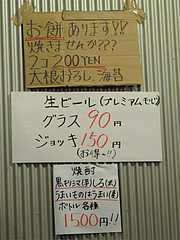 お餅あります!!
焼きませんか???
2コ200YEN
大根おろし、海苔
生ビール(プレミアムモルツ)
グラス 90円
ジョッキ150円
(お得〜!!)
焼酎
黒キリシマ(芋)しろ(米)
うまいものはうまい(麦)
ボトル各種
1500円!!